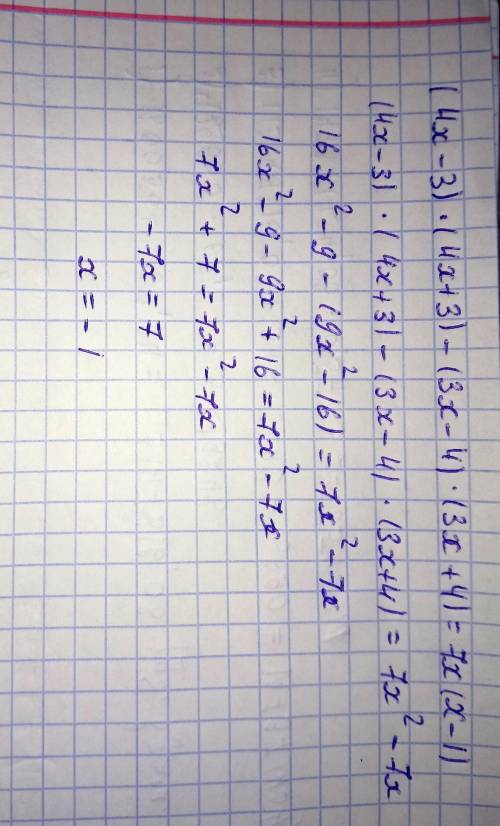 (4x-3)·(4x+3)-(3x-4)·(3x+4)=7x(x-1)
(4x-3)·(4x+3)-(3x-4)·(3x+4)=7x²-7x
16x²-9-(9x²-16)=7x²-7x
16x²-9-9x²+16=7x²-7x
7x²+7=7x²-7x
-7x=7
x=-1